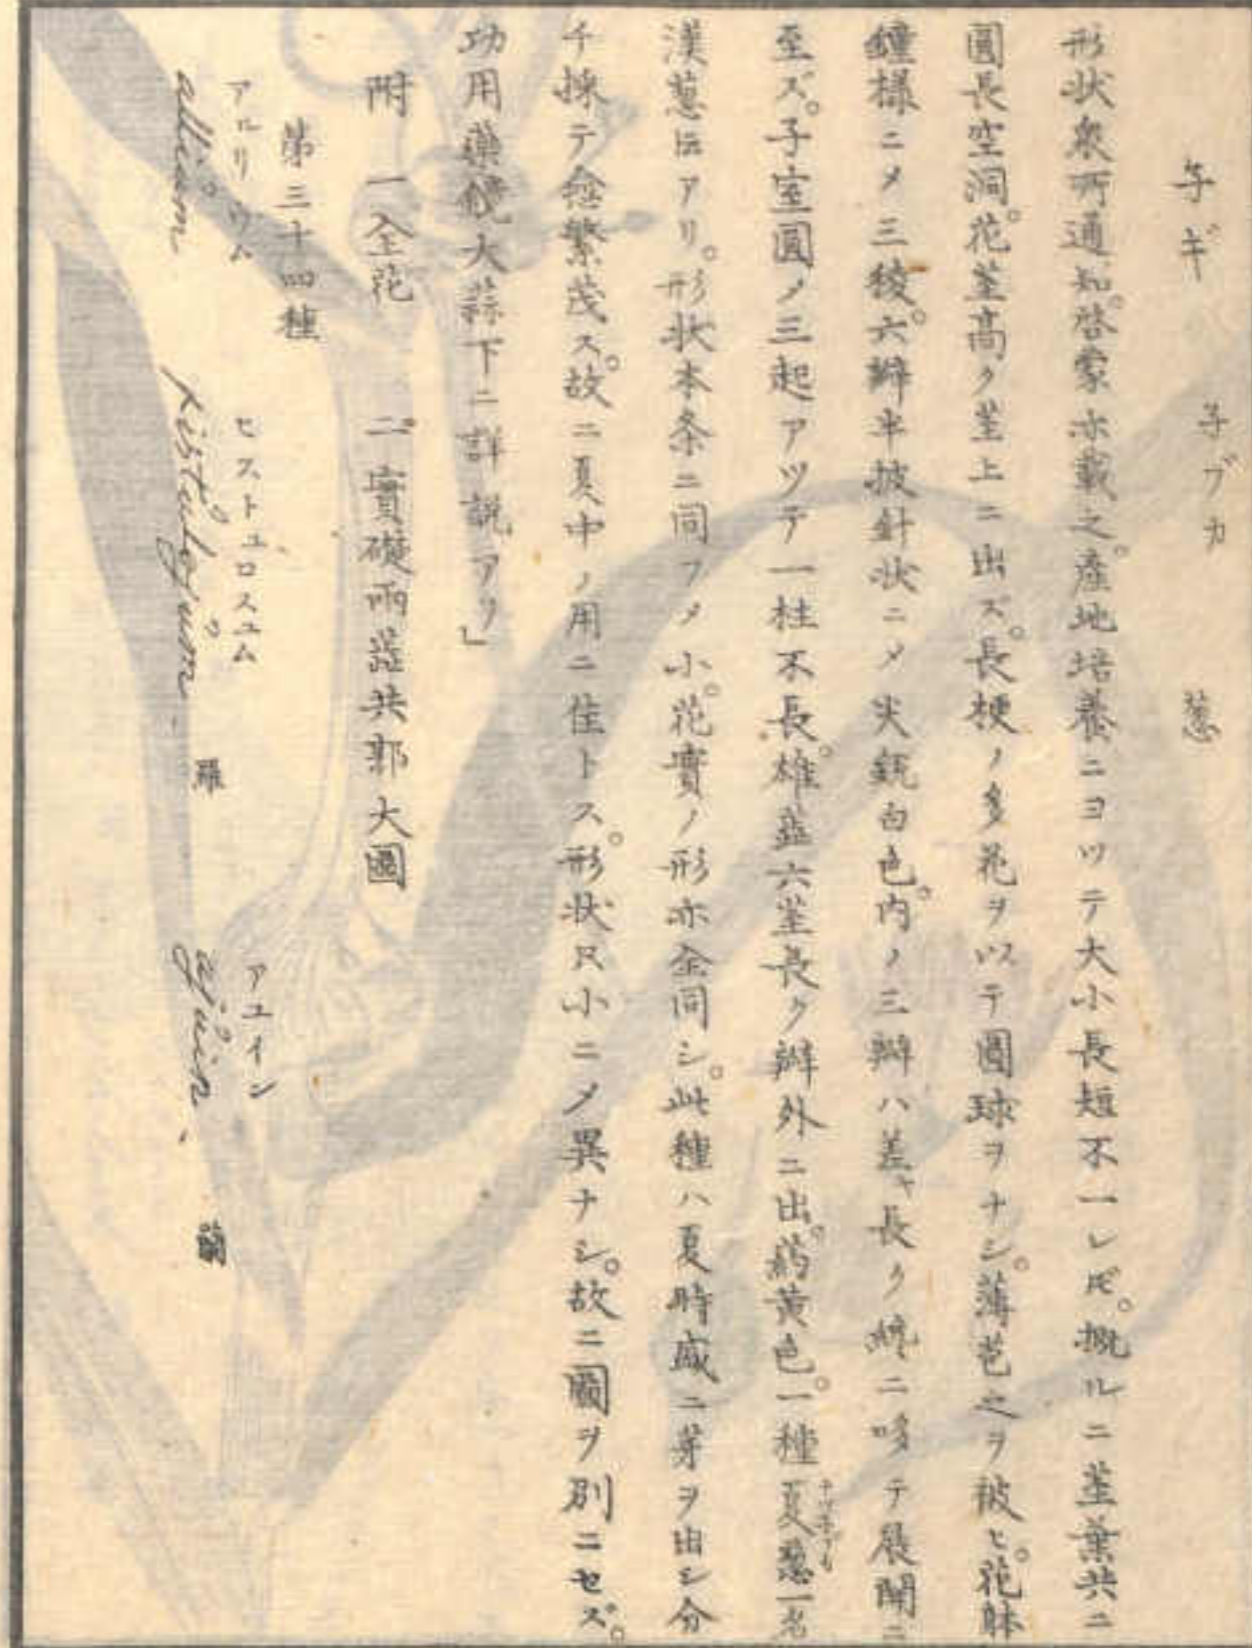 子ギ　子ブカ　葱
形状衆所通知。啓蒙亦載之。産地培養ニヨツテ大小長短不一レ𪜈。概ルニ茎葉共ニ
圓長空洞。花茎高ク茎上ニ出ズ。長梗ノ多花ヲ以テ圓球ヲナシ。薄苞之ヲ被ヒ。花躰
鐘様ニメ三稜。六瓣半披針状ニメ尖鋭白色。内ノ三瓣ハ差ヤ長ク纔ニ哆テ展開ニ
至ズ。子室圓ノ三起アツテ一柱不長。雄蕋六茎長ク瓣外ニ出。葯黄色。一種夏葱一名
漢葱𪜈アリ。形状本条ニ同フメ小。花實ノ形亦全同シ。此種ハ夏時盛ニ芽ヲ出シ分
チ採テ益繁茂ス。故ニ夏中ノ用ニ佳トス。形状只小ニメ異ナシ。故ニ圖ヲ別ニセズ。
功用藥鏡大蒜下ニ詳説アリ」
附　一全花　二實礎雨蕋共郭大圖
第三十四種
アルリウム　ヒストユロスユム　アユイン
allium　fistulosum.　羅　ajuin.　蘭